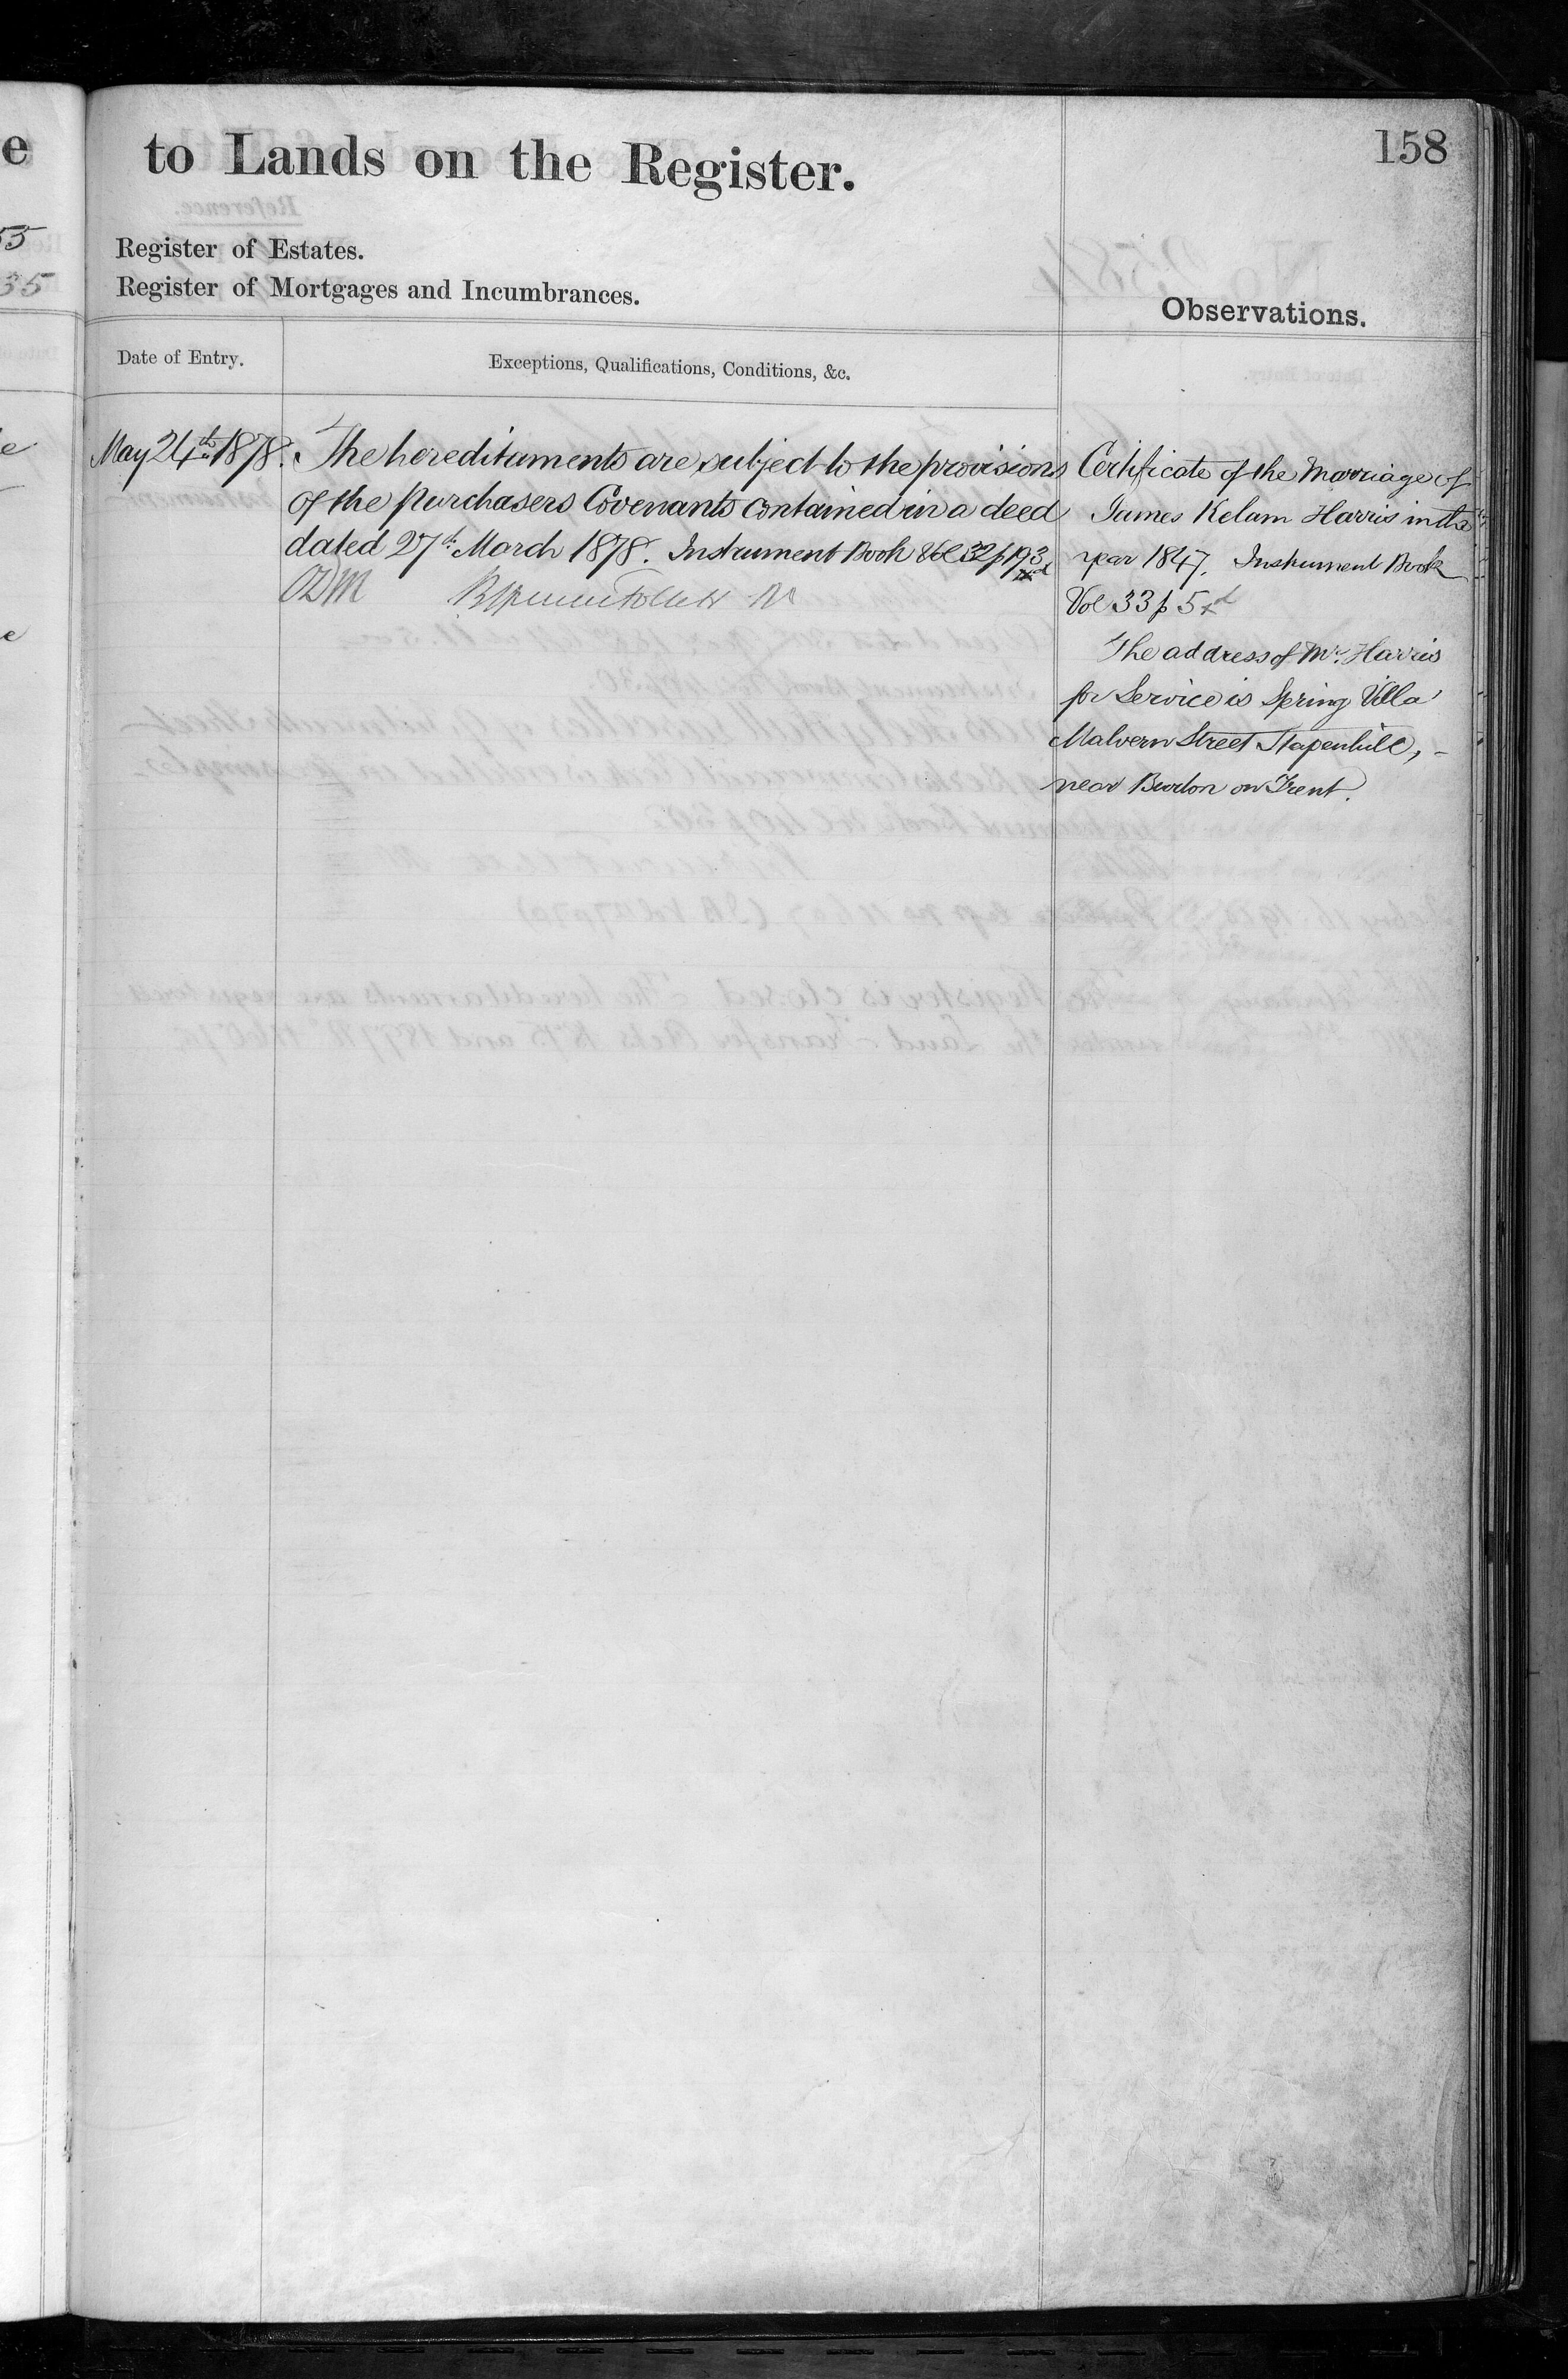 158
to Lands on the Register.
Register of Estates.
Register of Mortgages and Incumbrances.
Observations.
Date of Entry.
Exceptions, Qualifications, Conditions, &c.
May 24th 1878.
The hereditaments are subject to the provisions
of the purchasers Covenants contained in a deed
dated 27th March 1878. Instrument Book Vol 32 p 193
Certificate of the Marriage of
James Kelam Harris in the
year 1847. Instrument Book
Vol 33 p 5
The address of Mr. Harris
for Service is Spring Villa
Malvern Street Stapenhill,
near Burton on Trent.